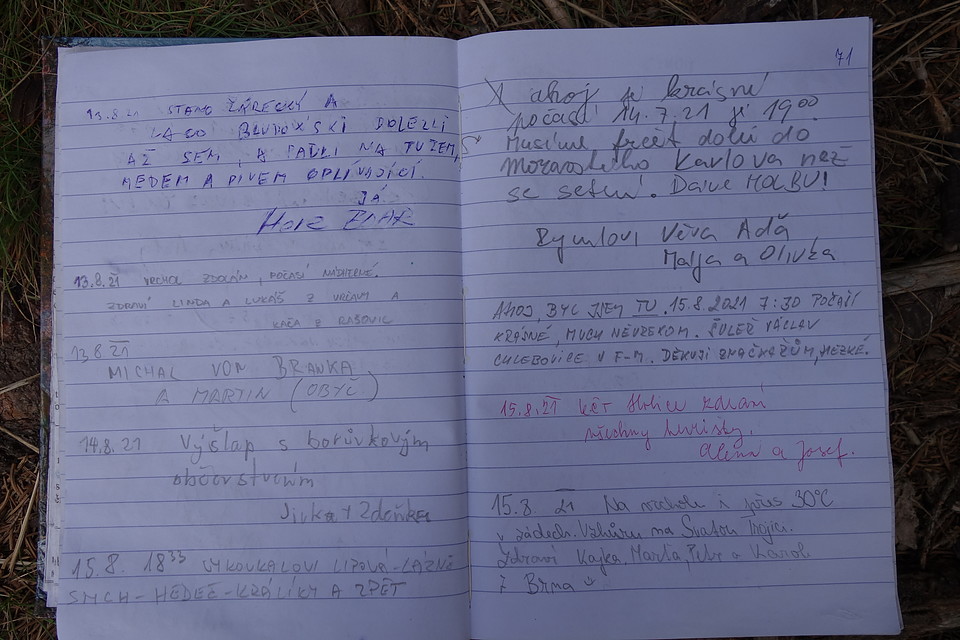 13.8.21 STANO ZÁRECKÝ A
LACO DOLEZLI
AŽ SEM, A ĽAHLI NA TÚ ZEM,
MEDEM A PIVEM OPLÝVAJÍCÍ.
JÁ
HORE ZDAR
13.8.21 VRCHOL ZDOLÁN, POČASÍ NÁDHERNÉ.
ZDRAVÍ LINDA A LUKÁŠ Z A
KÁČA Z RAŠOVIC
13.8.21
MICHAL VON BRANKA
A MARTIN (OBYČ)
14.8.21 Výšlap s borůvkovým
občerstvením
Jivka + Zdeňka
15.8. 18³³ VYKOUKALOVI LIPOVÁ-LÁZNĚ
SMCH-HEDEČ-KRÁLÍKY A ZPĚT
71
ahoj, je krásné
počasí, 14.7.21 je 19⁰⁰
Musíme frčet dolů do
moravského Karlova než
se setmí. Dáme HOLBU!
Rymlovi Věra Áďa
Maja a Olivka
AHOJ, BYL JSEM TU 15.8.2021 7:30 POČASÍ
KRÁSNÉ, MUCH NEVZEKOM. ŠULEŘ VÁCLAV
CHLEBOVICE U F-M. DĚKUJI ZNAČKAŘŮM, HEZKÉ.
15.8.21 zdraví
všechny turisty.
Alena a Josef.
15.8. 21 Na vrcholu i přes 30°C
v zádech. Vzhůru na Svatou Trojici.
Zdraví Kajka, Marta, Petr a Karol
z Brna